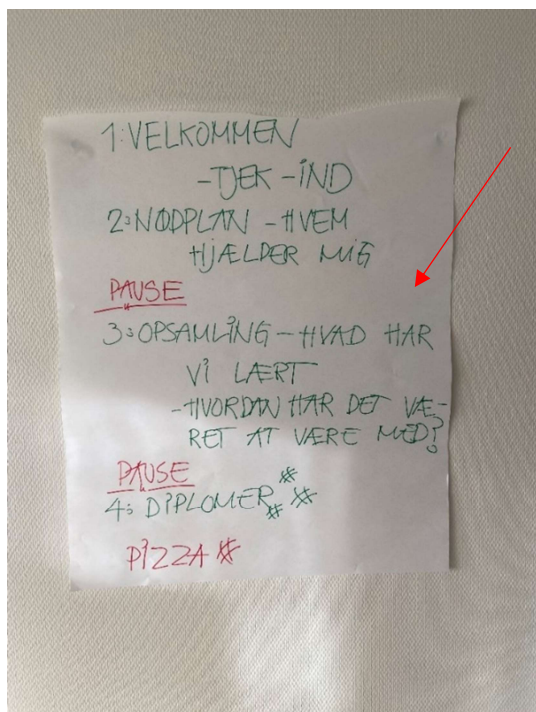 1: VELKOMMEN
- TJEK - IND
2: NØDPLAN - HVEM
HJÆLPER MIG
PAUSE
3: OPSAMLING - HVAD HAR
VI LÆRT
- HVORDAN HAR DET VÆ-
RET AT VÆRE MED?
PAUSE
4: DIPLOMER
PIZZA